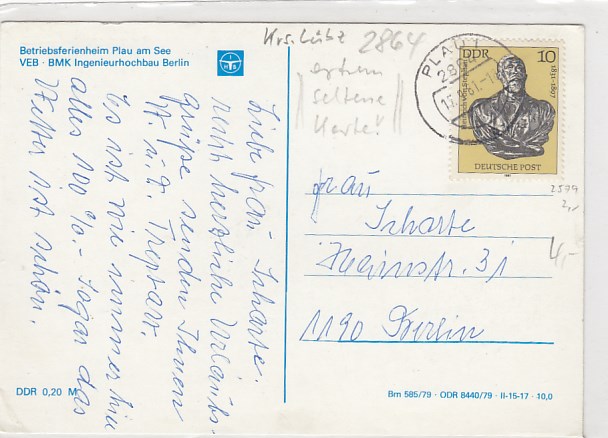 Betriebsferienheim Plau am See
VEB · BMK Ingenieurhochbau Berlin
Krs. Lübz 2864
extrem
seltene
Karte!
PLAU
DDR 10
1831-1897
DEUTSCHE POST
2599
2,-
4,-
Liebe Frau Scharte.
recht herzliche Urlaubs-
grüße senden Ihnen
W. u. G.
Es ist wie immer hier
alles 100 %.- Sogar das
Wetter ist schön.
Frau
Scharte
31
1190 Berlin
DDR 0,20 M
Bm 585/79 · ODR 8440/79 · II-15-17 · 10,0